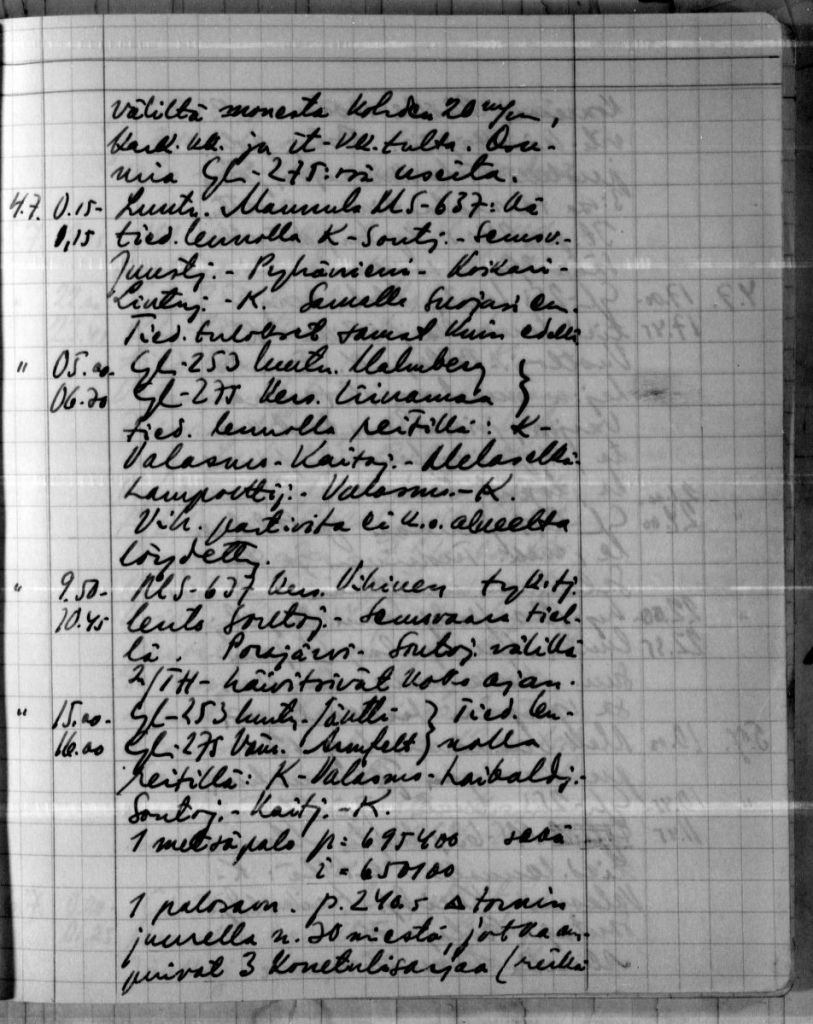 väliltä monesta kohden 20 m/m,
kark.kk. ja it-kk.tulta. Osu-
mia GL-275:ssä useita.
4.7. 0.15- Luutn. Mannula MS-637:llä
0,15 tied.lennolla K-Soutj.-Semsv.-
Juustj.-Pyhäniemi-Koikari-
Lintuj.-K. Samalla suojasi
Tied.tulokset samat kuin edellä
" 05.00- GL-253 luutn. Malmberg }
06.20 GL-275 kers. Linnamaa }
tied. lennolla reitillä: K-
Valasms-Kaitaj.-Melaselkä-
Lampoettij.-Valasms.-K.
Vih. partiota ei k.o. alueelta
löydetty.
" 9.50- MS-637 kers. Vihinen tyk.tj.
10.45 lento Soutoj.-Semsvaara tiel-
lä. Porajärvi-Soutoj. välillä
2/TH- häiritsivät koko ajan.
" 15.00- GL-253 luutn. Jäntti } Tied. len-
16.00 GL-275 Vänr. Armfelt } nolla
reitillä: K-Valasms-Laibaldj.-
Soutoj.-Kaitj.-K.
1 metsäpalo p= 695400 sekä
i = 650100
1 palosavu. p. 240,5 △ tornin
juurella n. 20 miestä, jotka am-
puivat 3 konetulisarjaa (reikä